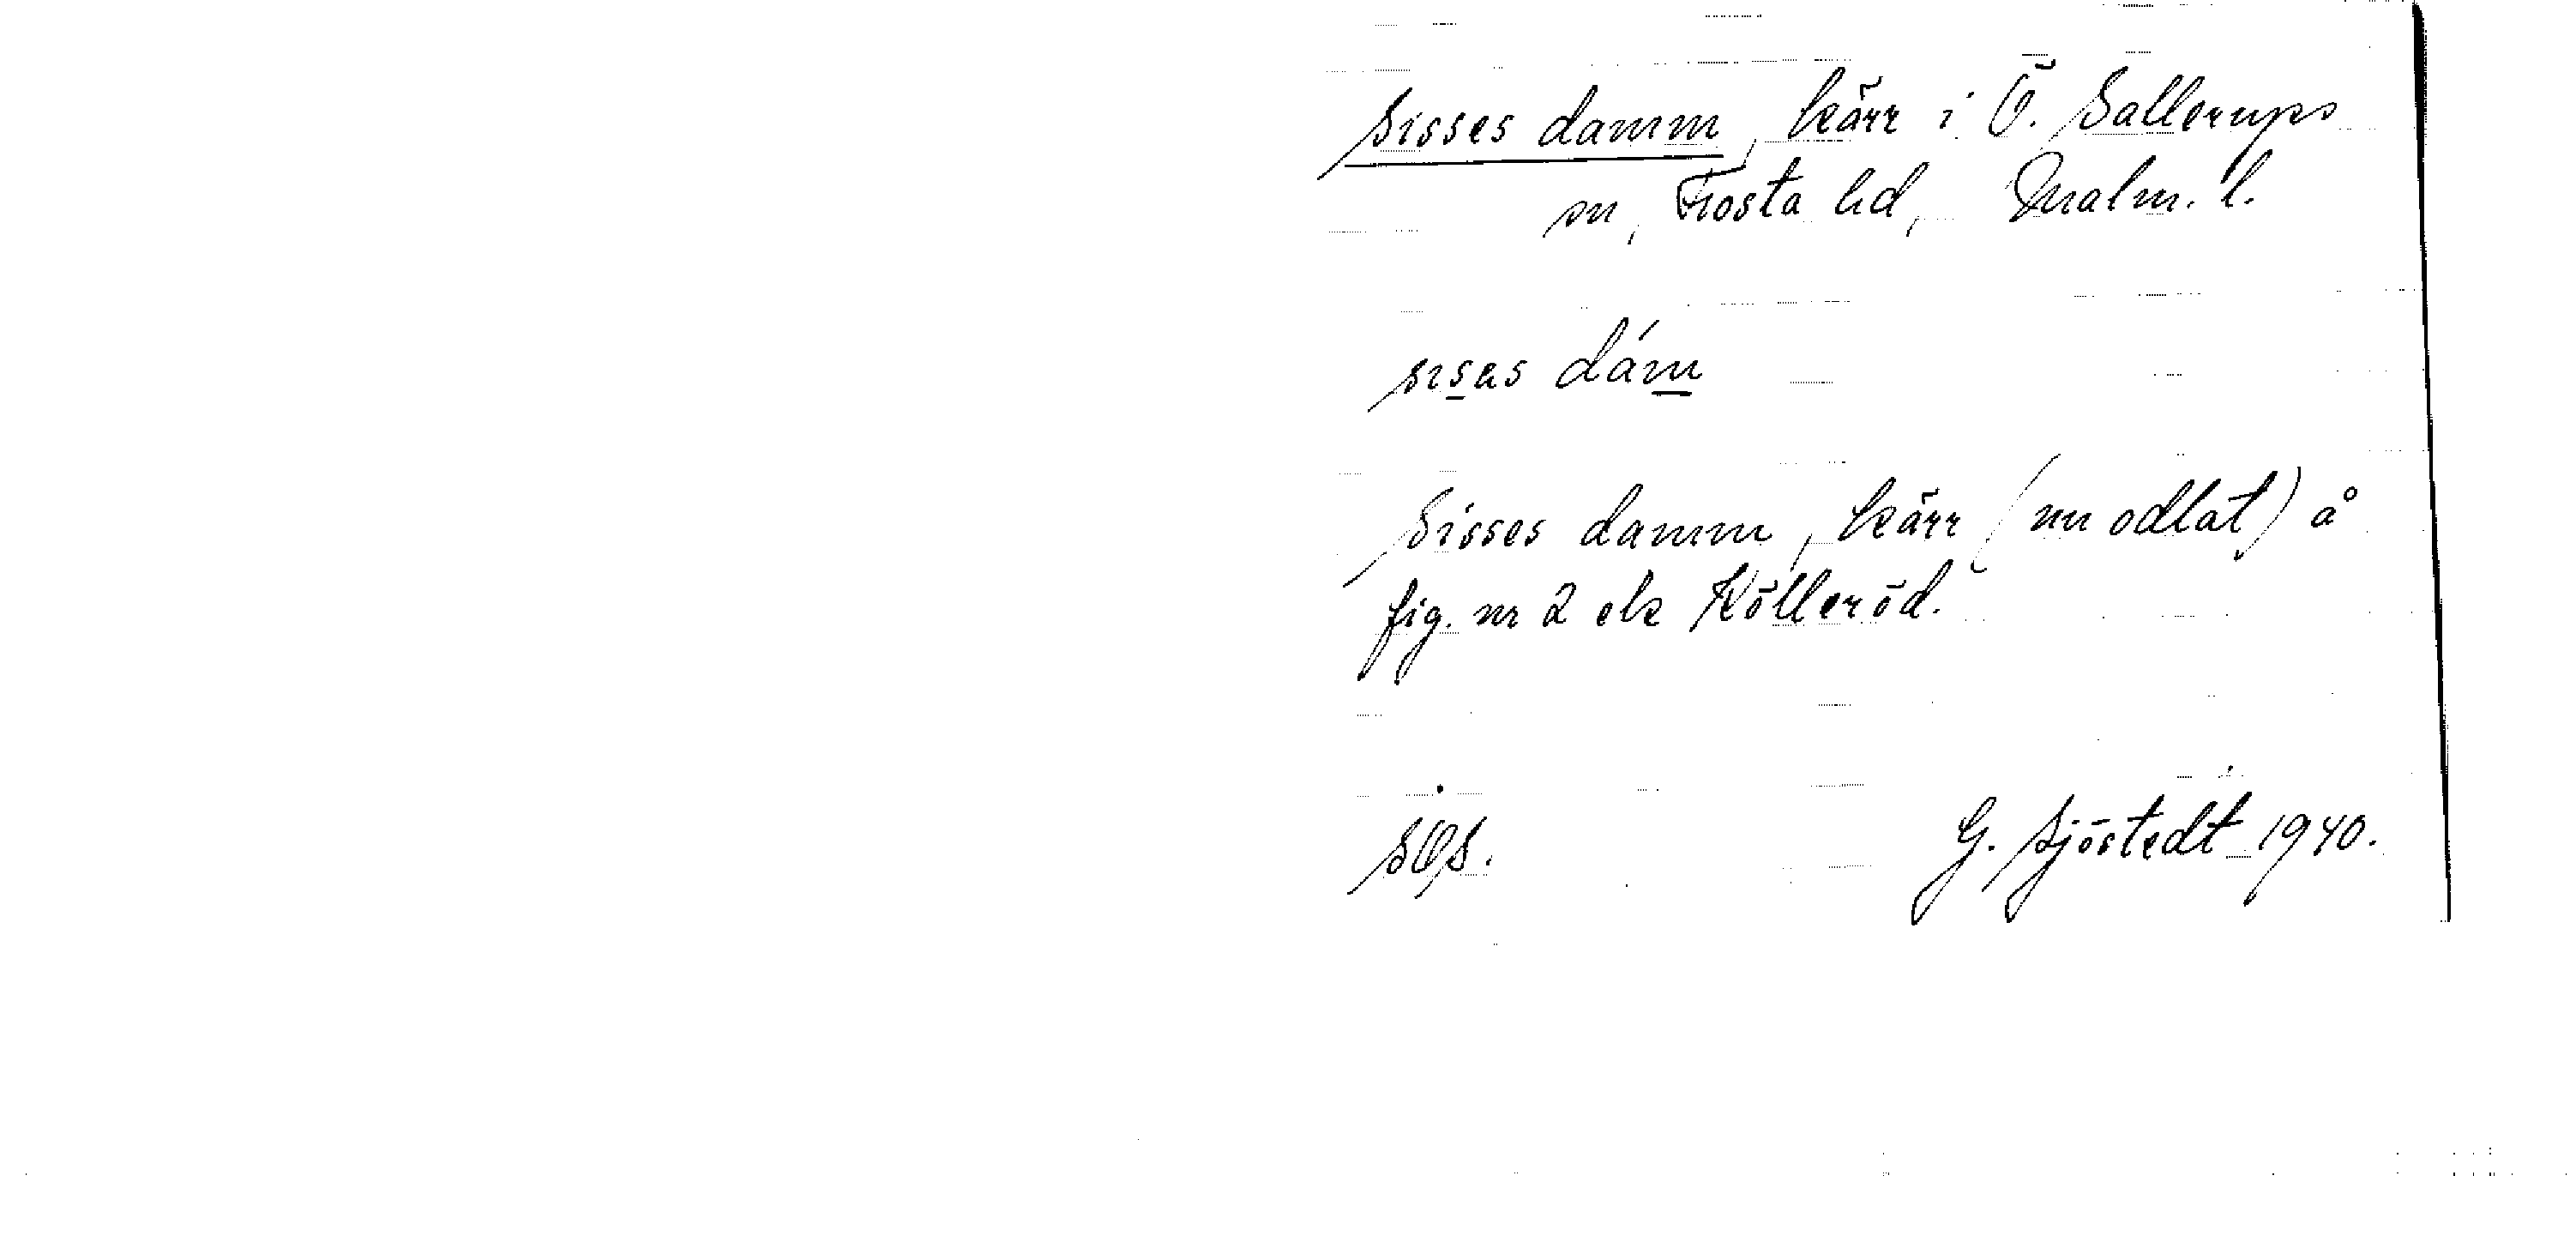 Sisses damm, kärr i Ö. Sallerups
sn, Frosta hd, Malm. l.
sısas dám
Sisses damm, kärr (nu odlat) å
fig. nr 2 ek Kölleröd.
SOS.
G. Sjöstedt 1940.